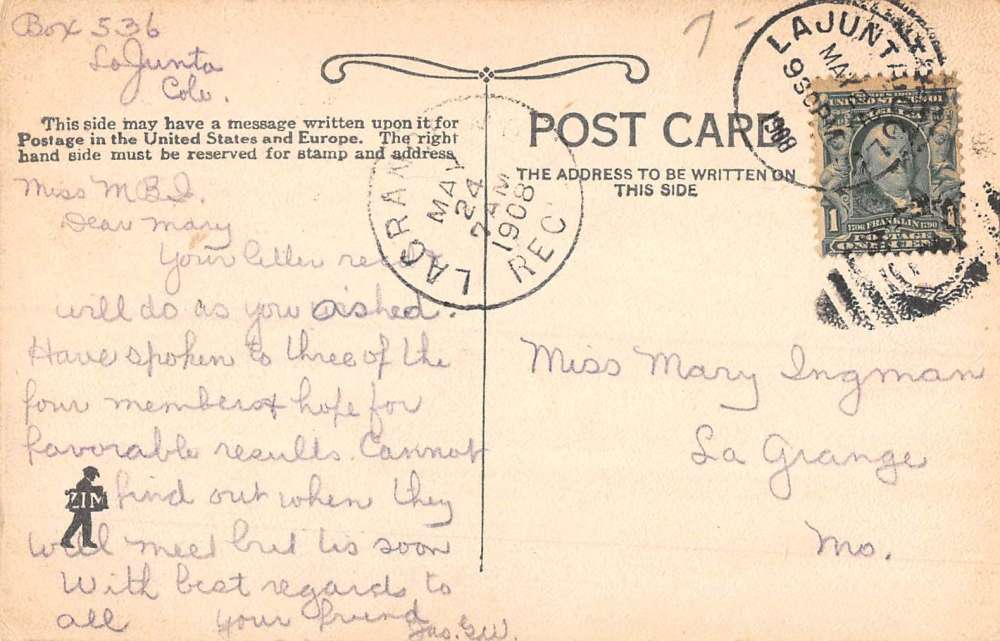 Box 536
La Junta
Colo.
This side may have a message written upon it for
Postage in the United States and Europe. The right
hand side must be reserved for stamp and address
Miss M B I.
Dear Mary
Your letter recd
will do as you asked.
Have spoken to three of the
four members & hope for
favorable results. Cannot
find out when they
will meet but tis soon
With best regards to
all your friend
Jas. G.W.
ZIM
LAGRANGE
MAY
24
7 AM
1908
REC'
POST CARD
THE ADDRESS TO BE WRITTEN ON
THIS SIDE
LA JUNTA
MAY
930P
1908
1
1706 FRANKLIN 1790
POSTAGE
ONE CENT
Miss Mary Ingman
La Grange
Mo.